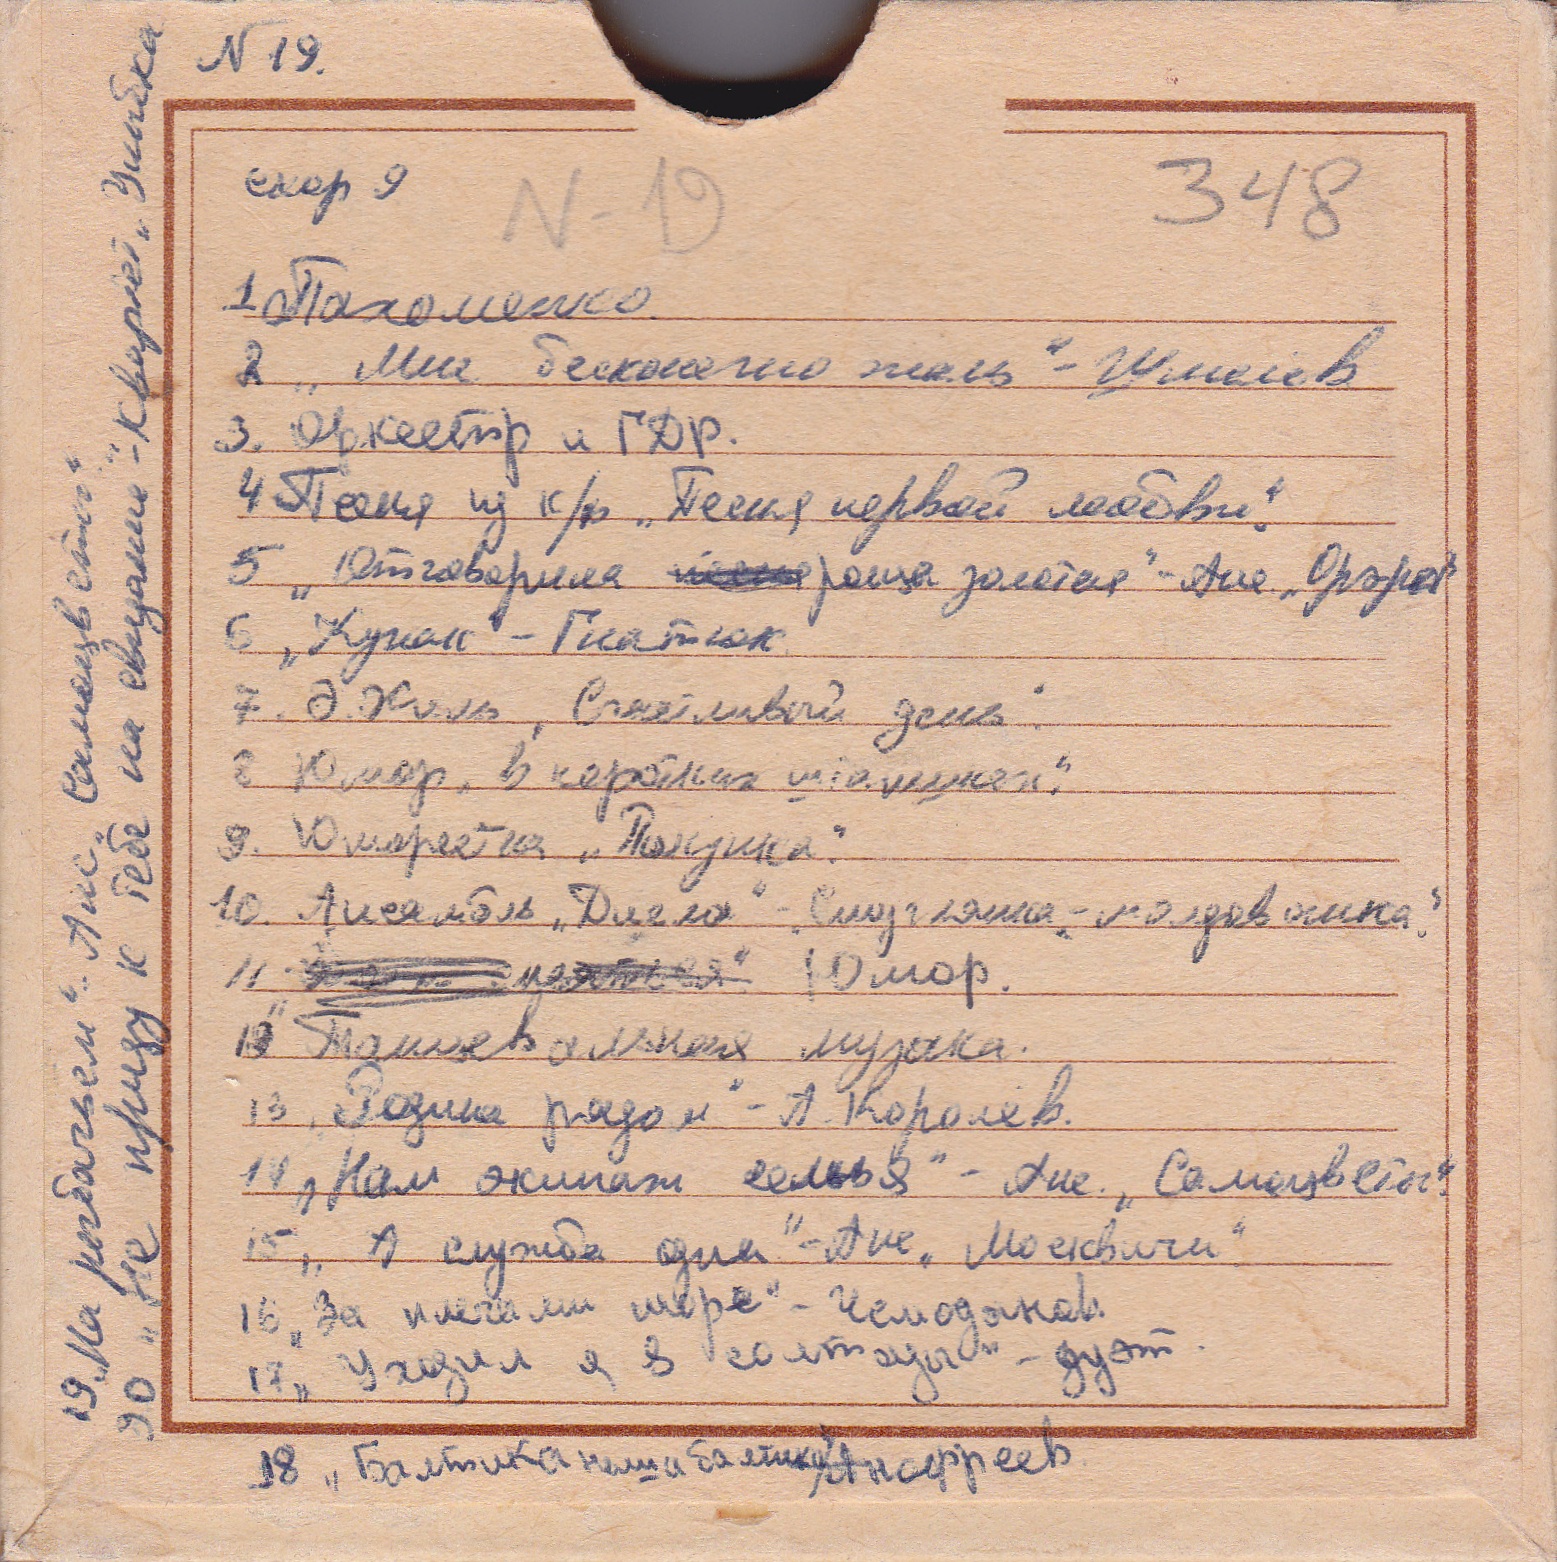 N 19.
скор 9
N-19
348
1 Пахоменко.
2 „Мне бесконечно жаль“ - Шмелёв
3. Оркестр и ГДР.
4 Песня из к/ф „Песня первой любви“.
5 „Отговорила роща золотая“ - Анс. „Орэра“
6 „Кунак“ - Гнатюк
7. Э. Хиль „Счастливый день“.
8 Юмор „В коротких штанишках“.
9. Юмореска „Покупка“.
10. Ансамбль „Диэло“ - „Смуглянка - молдованка“.
11 Юмор.
12 Танцевальная музыка.
13 „Родина рядом“ - А. Королёв.
14 „Нам экипаж семья“ - Анс. „Самоцветы“.
15 „А служба одна“ - Анс „Москвичи“
16 „За плечами море“ - Чемоданов.
17 „Уходил я в солдаты“ - дуэт.
18 „Балтика наша балтика“ Анофреев.
19 „На рыбачьем“ - Анс „Самоцветы“
20 „Не приду к тебе на свидание“ - квартет „Улыбка